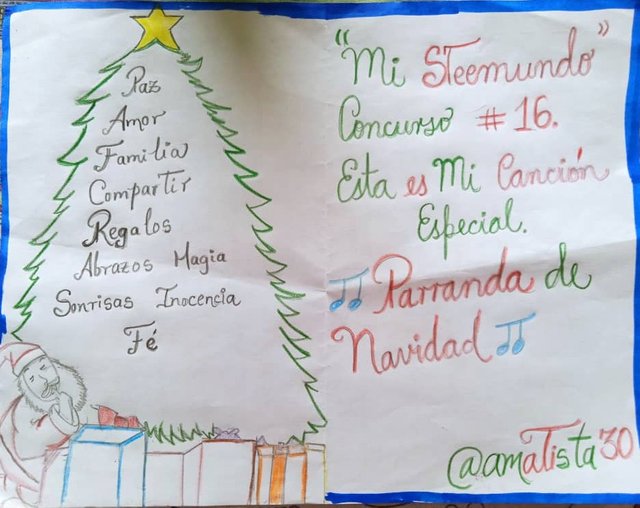 Paz
Amor
Familia
Compartir
Regalos
Abrazos Magia
Sonrisas Inocencia
Fé
"Mi STeemundo"
Concurso # 16.
Esta es Mi Canción
Especial.
Parranda de
Navidad
@amaTista30